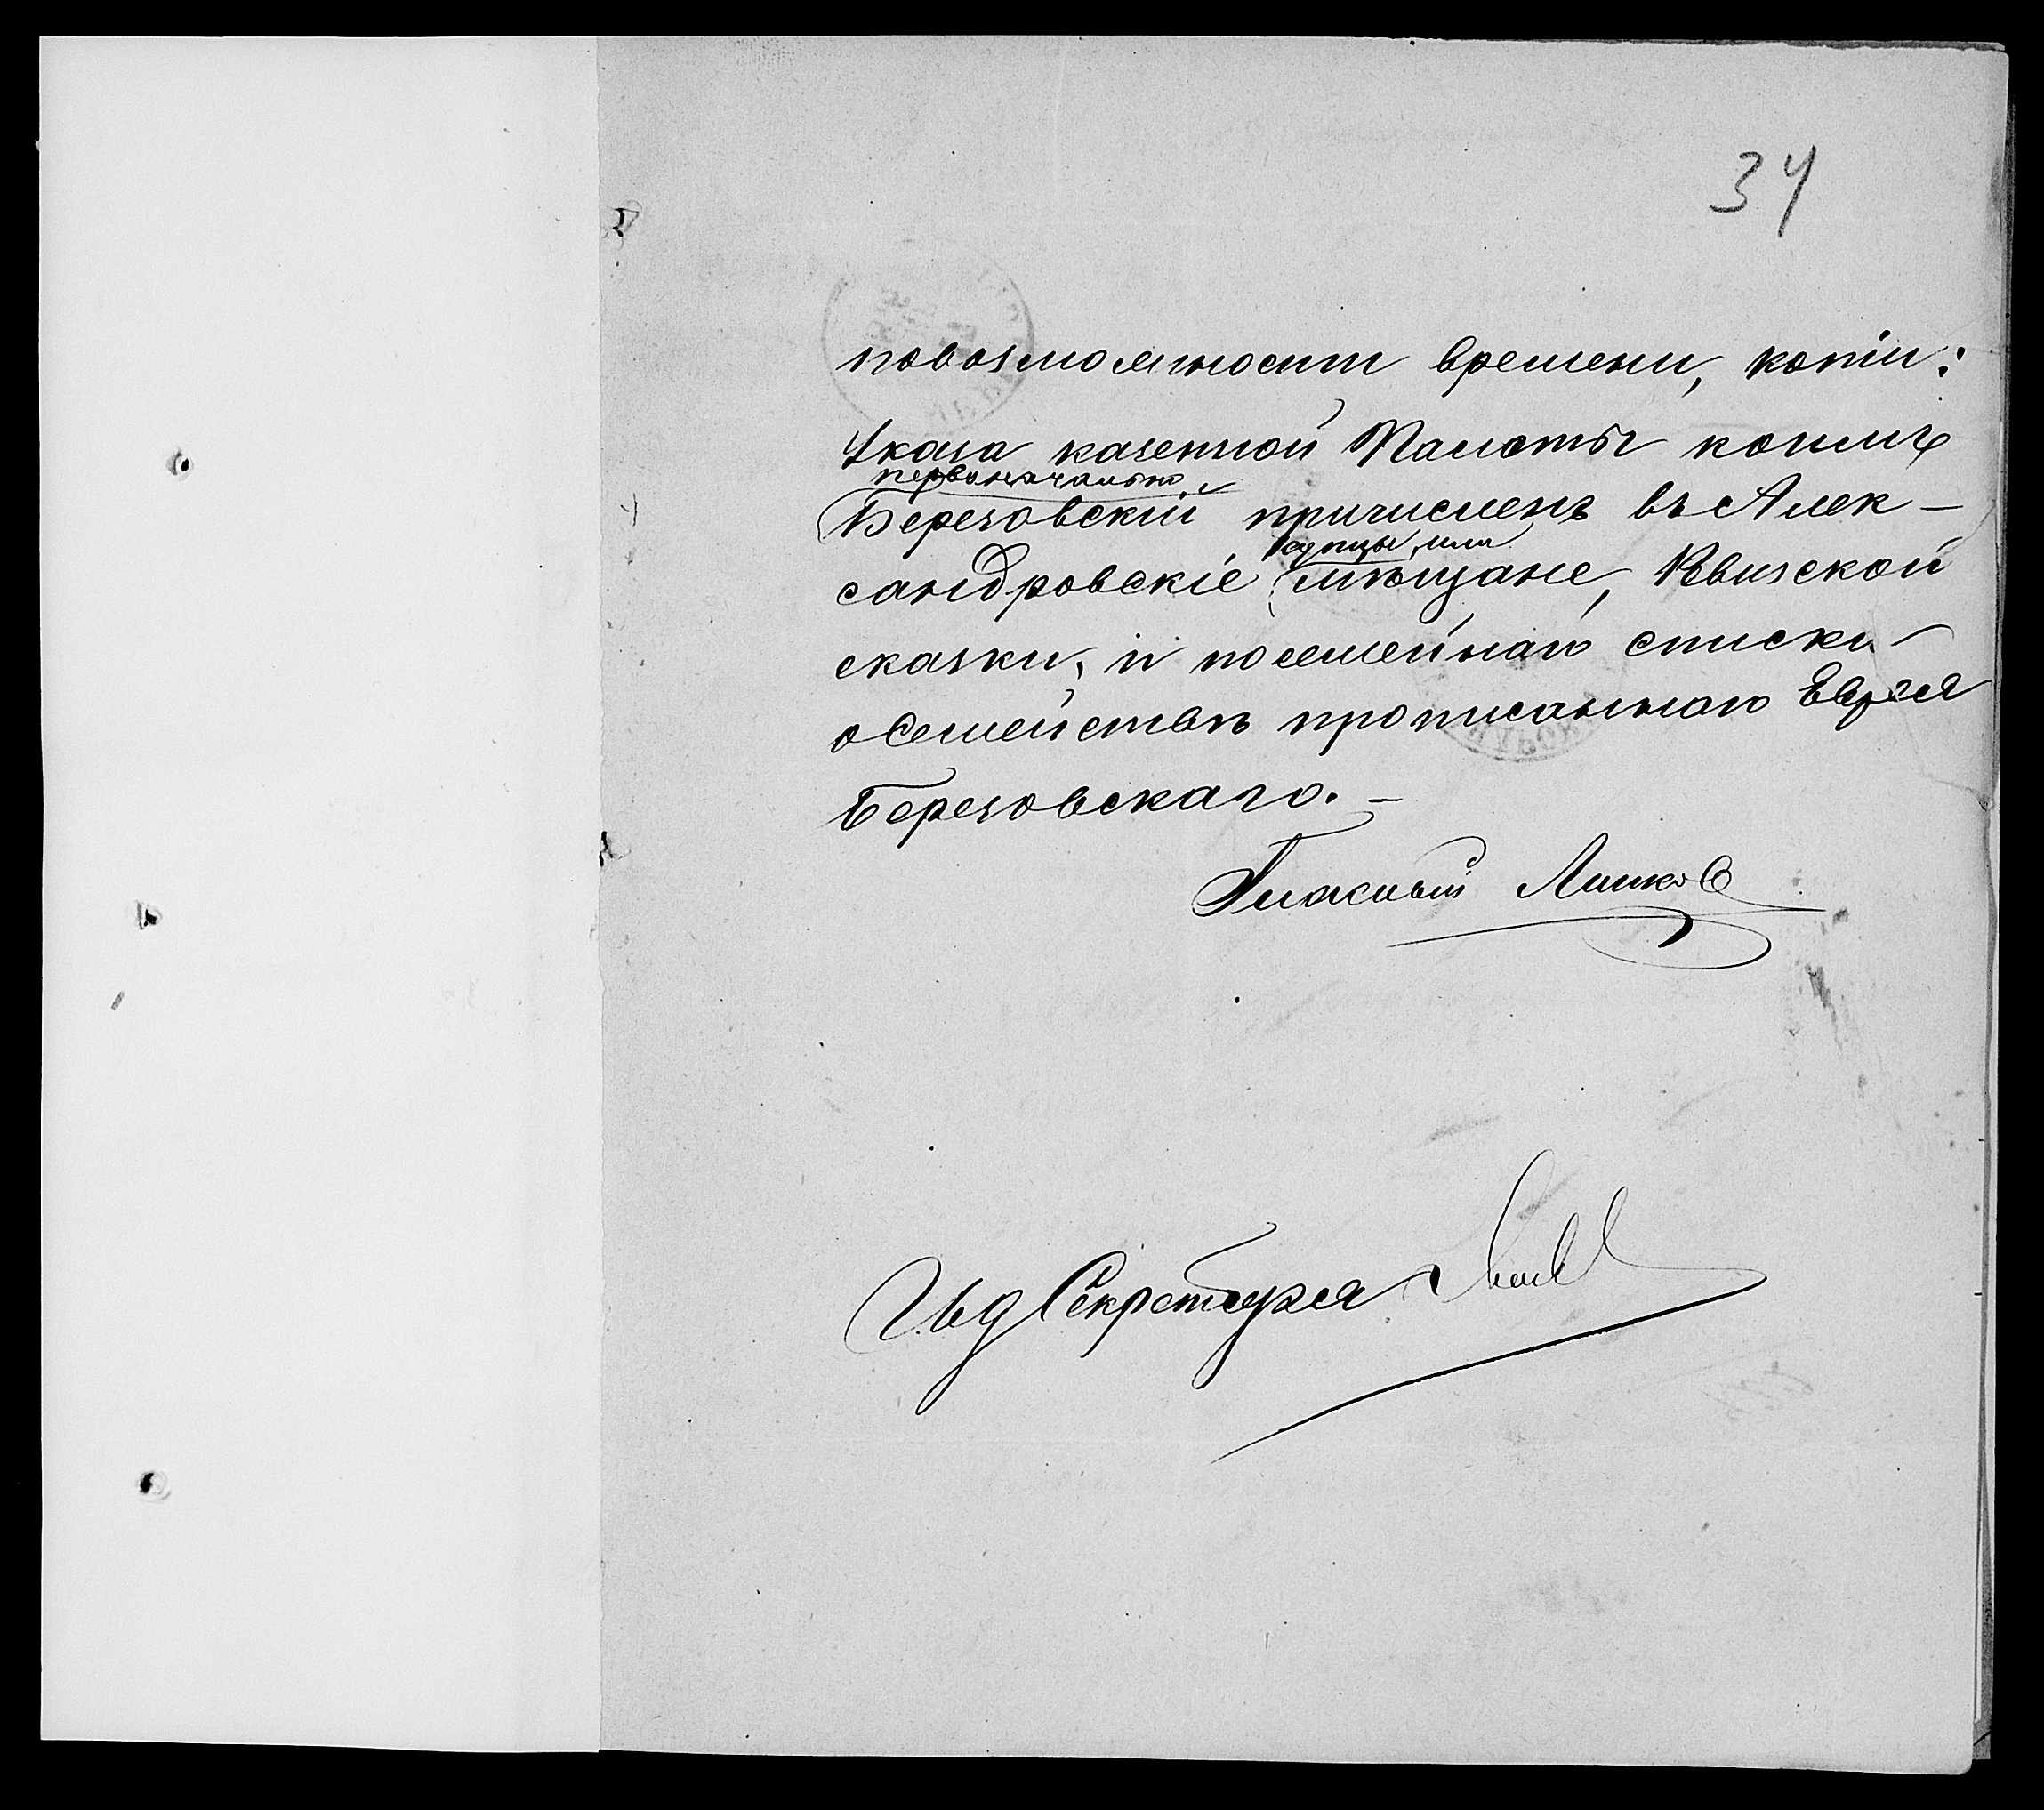 34
повозможности времени, копіи:
Указа казенной Палаты коимъ
первоначально
Березовскій причисленъ въ Алек-
купцы, или
сандровскіе мѣщане, Ревизской
сказки, и посемейнаго списка
о Семействѣ прописаннаго Еврея
Березовскаго. -
Гласный
Ив д Секретаря